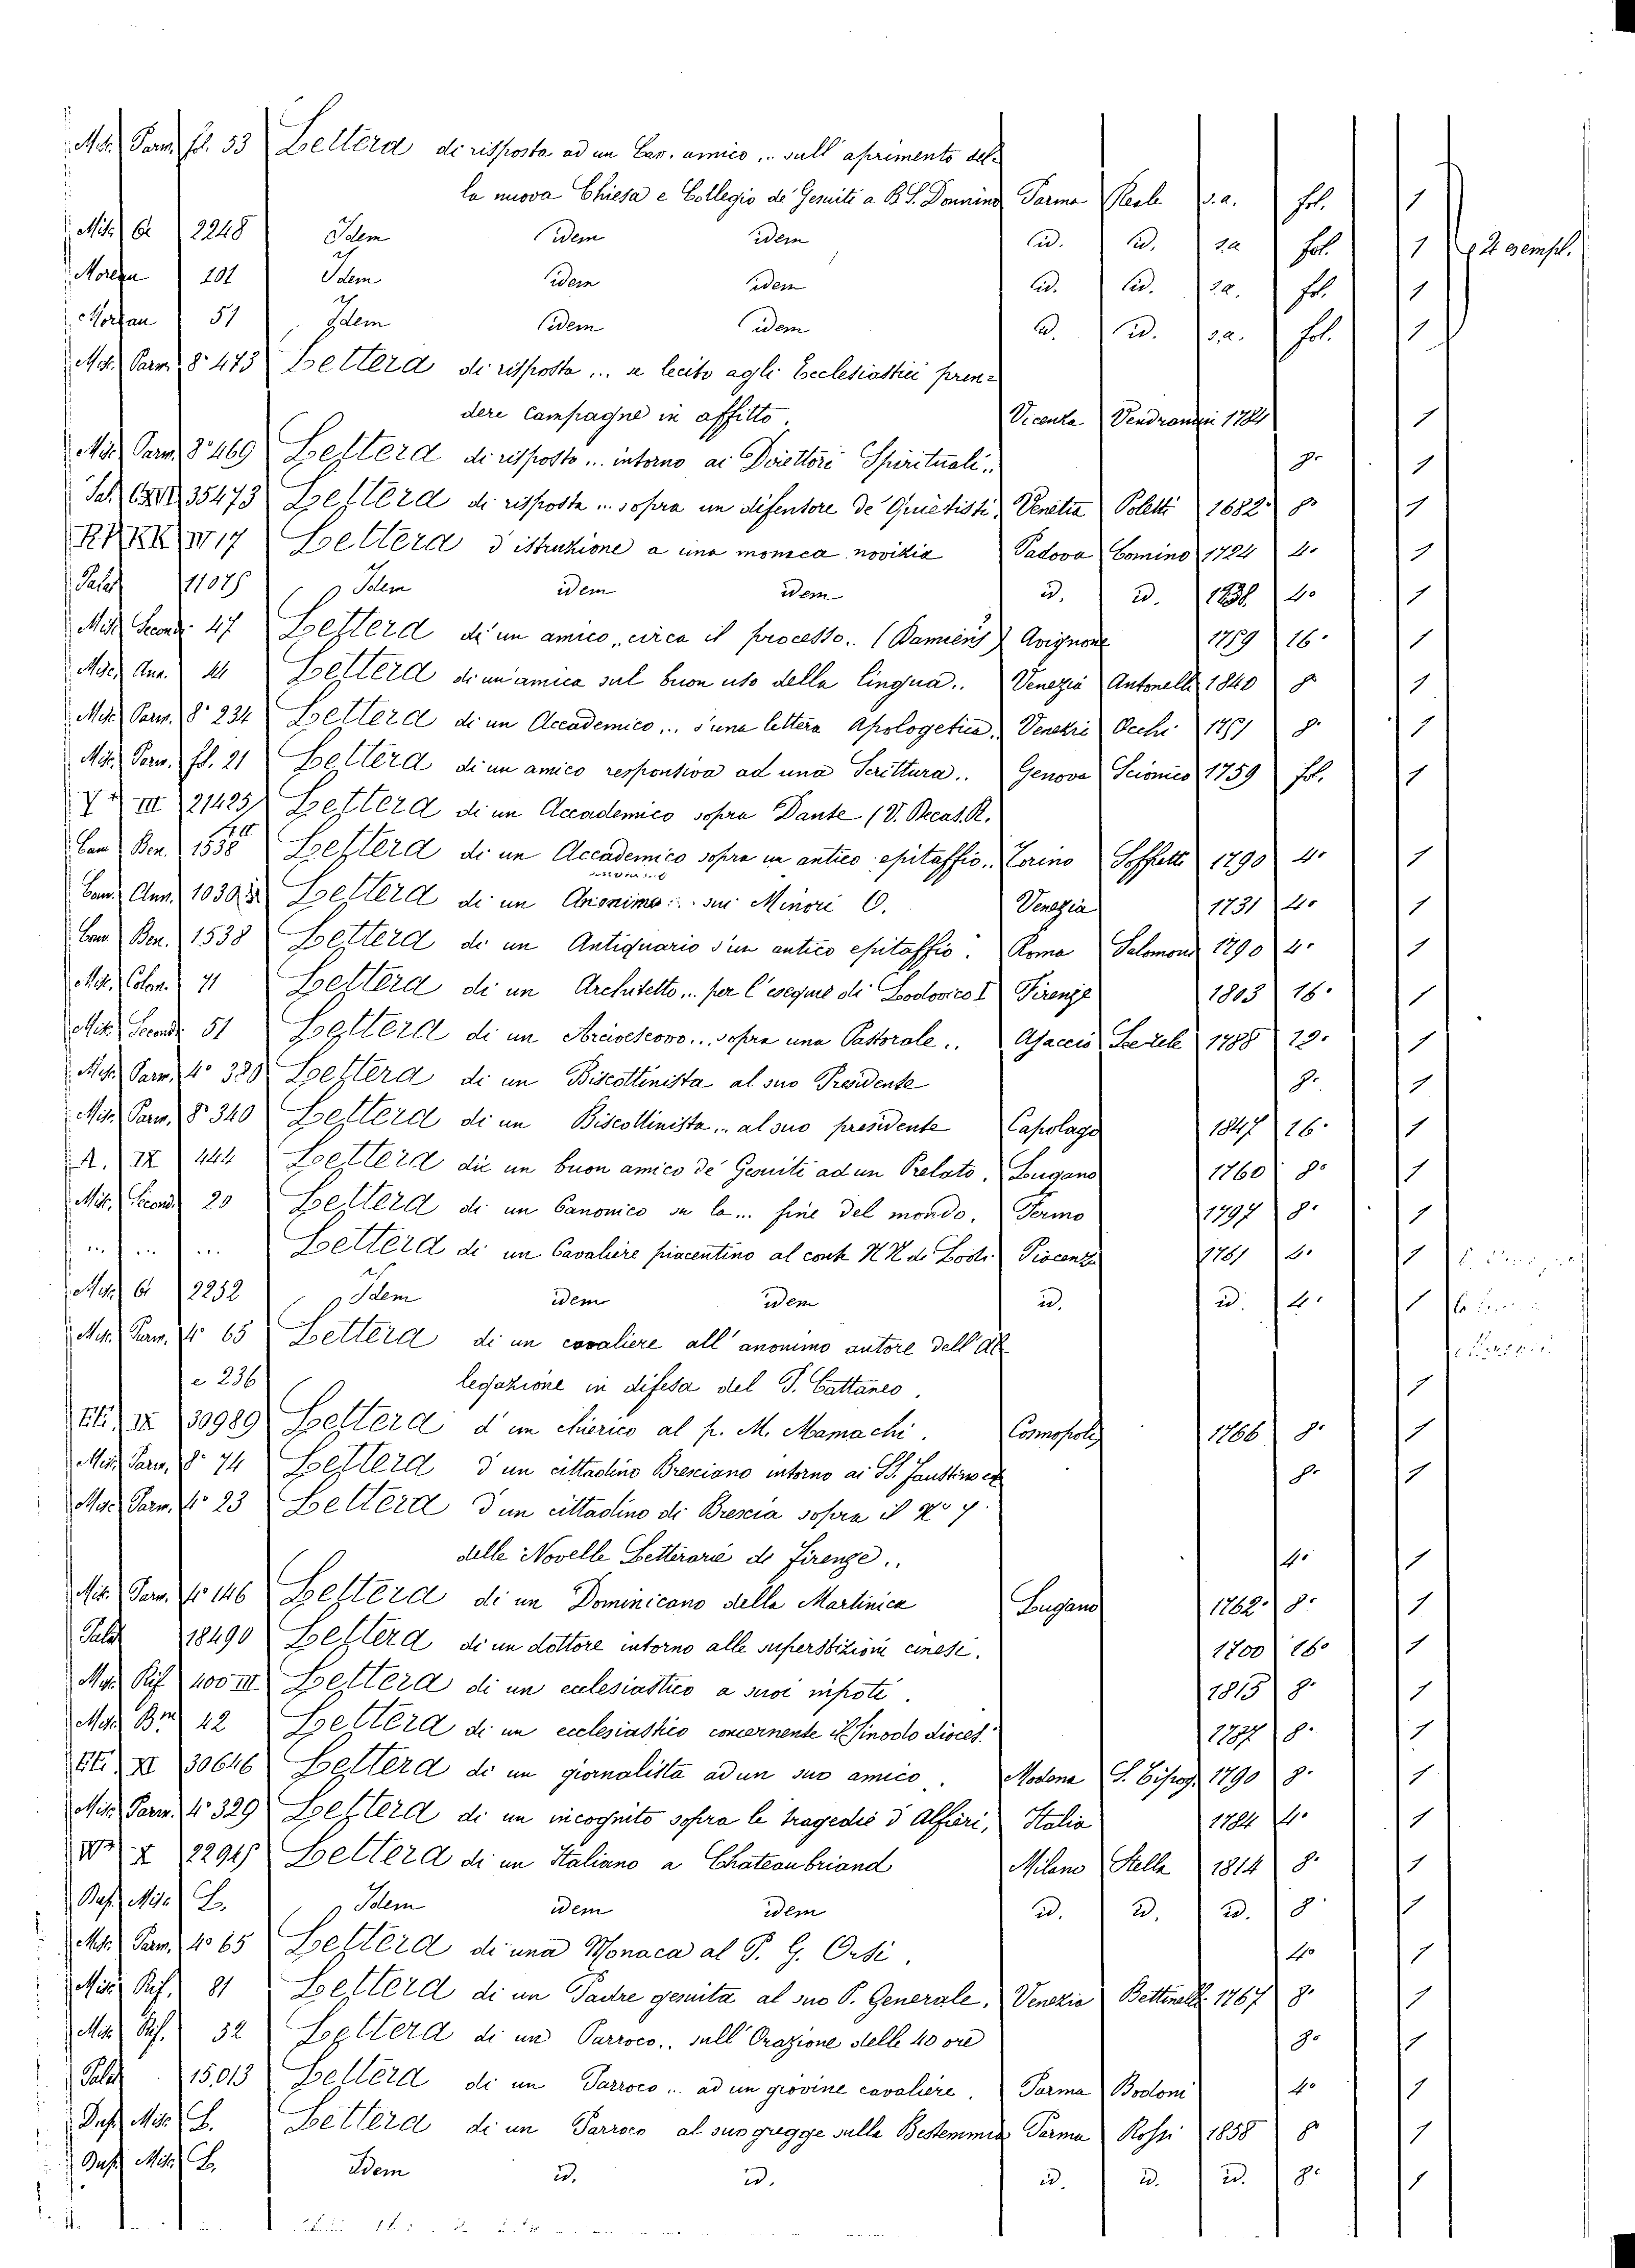 Misc. Parm. fol. 53 Lettera di risposta ad un Cav. amico ... sull' aprimento del-
la nuova Chiesa e Collegio de' Gesuiti a B. S. Donnino Parma Reale s.a. fol. 1
Misc. 2248 Idem idem idem id. id. s.a. fol. 1 2 esempl.
Moreau 101 Idem idem idem id. id. s.a. fol. 1
51 Idem idem idem id. id. s.a. fol. 1
Misc. Parm. 8° 473 Lettera di risposta ... se lecito agli Ecclesiastici pren-
dere Campagne in affitto. Vicenza Vendramin 1784 1
Misc. Parm. 8° 469 Lettera di risposta ... intorno ai Direttori Spirituali .. 8° 1
Sal. 35473 Lettera di risposta ... sopra un difensore de' Quietisti, Venetia Poletti 1682 8° 1
IV 17 Lettera d'istruzione a una monica novizia Padova Comino 1724 4° 1
Palat 11025 Idem idem idem id. id. 4° 1
Misc. Second. 47 Lettera di un amico, circa il processo .. (Damiens) Avignone 1759 16° 1
Misc. Ann. 44 Lettera di un'amica sul buon uso della lingua .. Venezia Antonelli 1840 8° 1
Misc. Parm. 8° 234 Lettera di un Accademico ... s'una lettera Apologetica, Venezia Occhi 1751 8° 1
Misc. Parm. fol. 21 Lettera di un amico responsiva ad una Scrittura .. Genova Scionico 1759 fol. 1
III 21425 Lettera di un Accademico sopra Dante (V. Becat. R.
Cam Ben. 1538 Lettera di un Accademico sopra un antico epitaffio .. Torino Soffietti 1790 4° 1
Cam. Ann. 1030 Lettera di un Anonimo ... sui Minori O. Venezia 1731 4° 1
Cam Ben. 1538 Lettera di un Antiquario s'un antico epitaffio. Roma Salomoni 1790 4° 1
Misc. Colom. 71 Lettera di un Architetto ... per l'esequie di Lodovico I Firenze 1803 16° 1
Misc. Second. 51 Lettera di un Arcivescovo ... sopra una Pastorale .. Ajaccio 1788 12° 1
Misc. Parm. 4° 320 Lettera di un Biscottinista al suo Presidente 8° 1
Misc. Parm. 8° 340 Lettera di un Biscottinista .. al suo presidente Capolago 1847 16° 1
A. IX 444 Lettera di un buon amico de' Gesuiti ad un Prelato. Lugano 1760 8° 1
Misc. Second. 20 Lettera di un Canonico su la ... fine del mondo. Fermo 1797 8° 1
... Lettera di un Cavaliere piacentino al conte NN di Lodi Piacenza 1761 1
Misc. 2252 Idem idem idem id. id. 4° 1
Misc. Parm. 4° 65 Lettera di un cavaliere all' anonimo autore dell' Al-
e 236 legazione in difesa del P. Cattaneo. 1
Etr. IX 30989 Lettera d' un chierico al p. M. Mamachi. Cosmopoli 1766 8° 1
Misc. Parm. 8° 74 Lettera d'un cittadino Bresciano intorno ai SS. Faustino ec 8° 1
Misc. Parm. 4° 23 Lettera d'un cittadino di Brescia sopra il N° 7
delle Novelle Letterarie di Firenze .. 4° 1
Misc. Parm. 4° 146 Lettera di un Dominicano della Martinica Lugano 1762 8° 1
Palat 18490 Lettera di un dottore intorno alle superstizioni cinesi. 1700 16° 1
Misc. Rif. 400 III Lettera di un ecclesiastico a suoi nipoti. 1815 8° 1
Misc. Bm 42 Lettera di un ecclesiastico concernente il Sinodo dioces. 1787 8° 1
Etr. XI 30646 Lettera di un giornalista ad un suo amico. Modena S. Tipog. 1790 8° 1
Misc. Parm. 4° 329 Lettera di un incognito sopra le tragedie d'Alfieri, Italia 1784 4° 1
X 22945 Lettera di un Italiano a Chateaubriand Milano Stella 1814 8° 1
Misc. L. Idem idem idem id. id. id. 8° 1
Misc. Parm. 4° 65 Lettera di una Monaca al P. G. Orsi. 4° 1
Misc. Rif. 81 Lettera di un Padre gesuita al suo P. Generale. Venezia Bettinelli 1767 8° 1
Misc. Rif. 52 Lettera di un Parroco .. sull' Orazione delle 40 ore 8° 1
Palat 15013 Lettera di un Parroco ... ad un giovine cavaliere. Parma Bodoni 4° 1
Misc. L. Lettera di un Parroco al suo gregge sulla Bestemmia Parma Rossi 1858 8° 1
Misc. L. Idem id. id. id. id. id. 8° 1